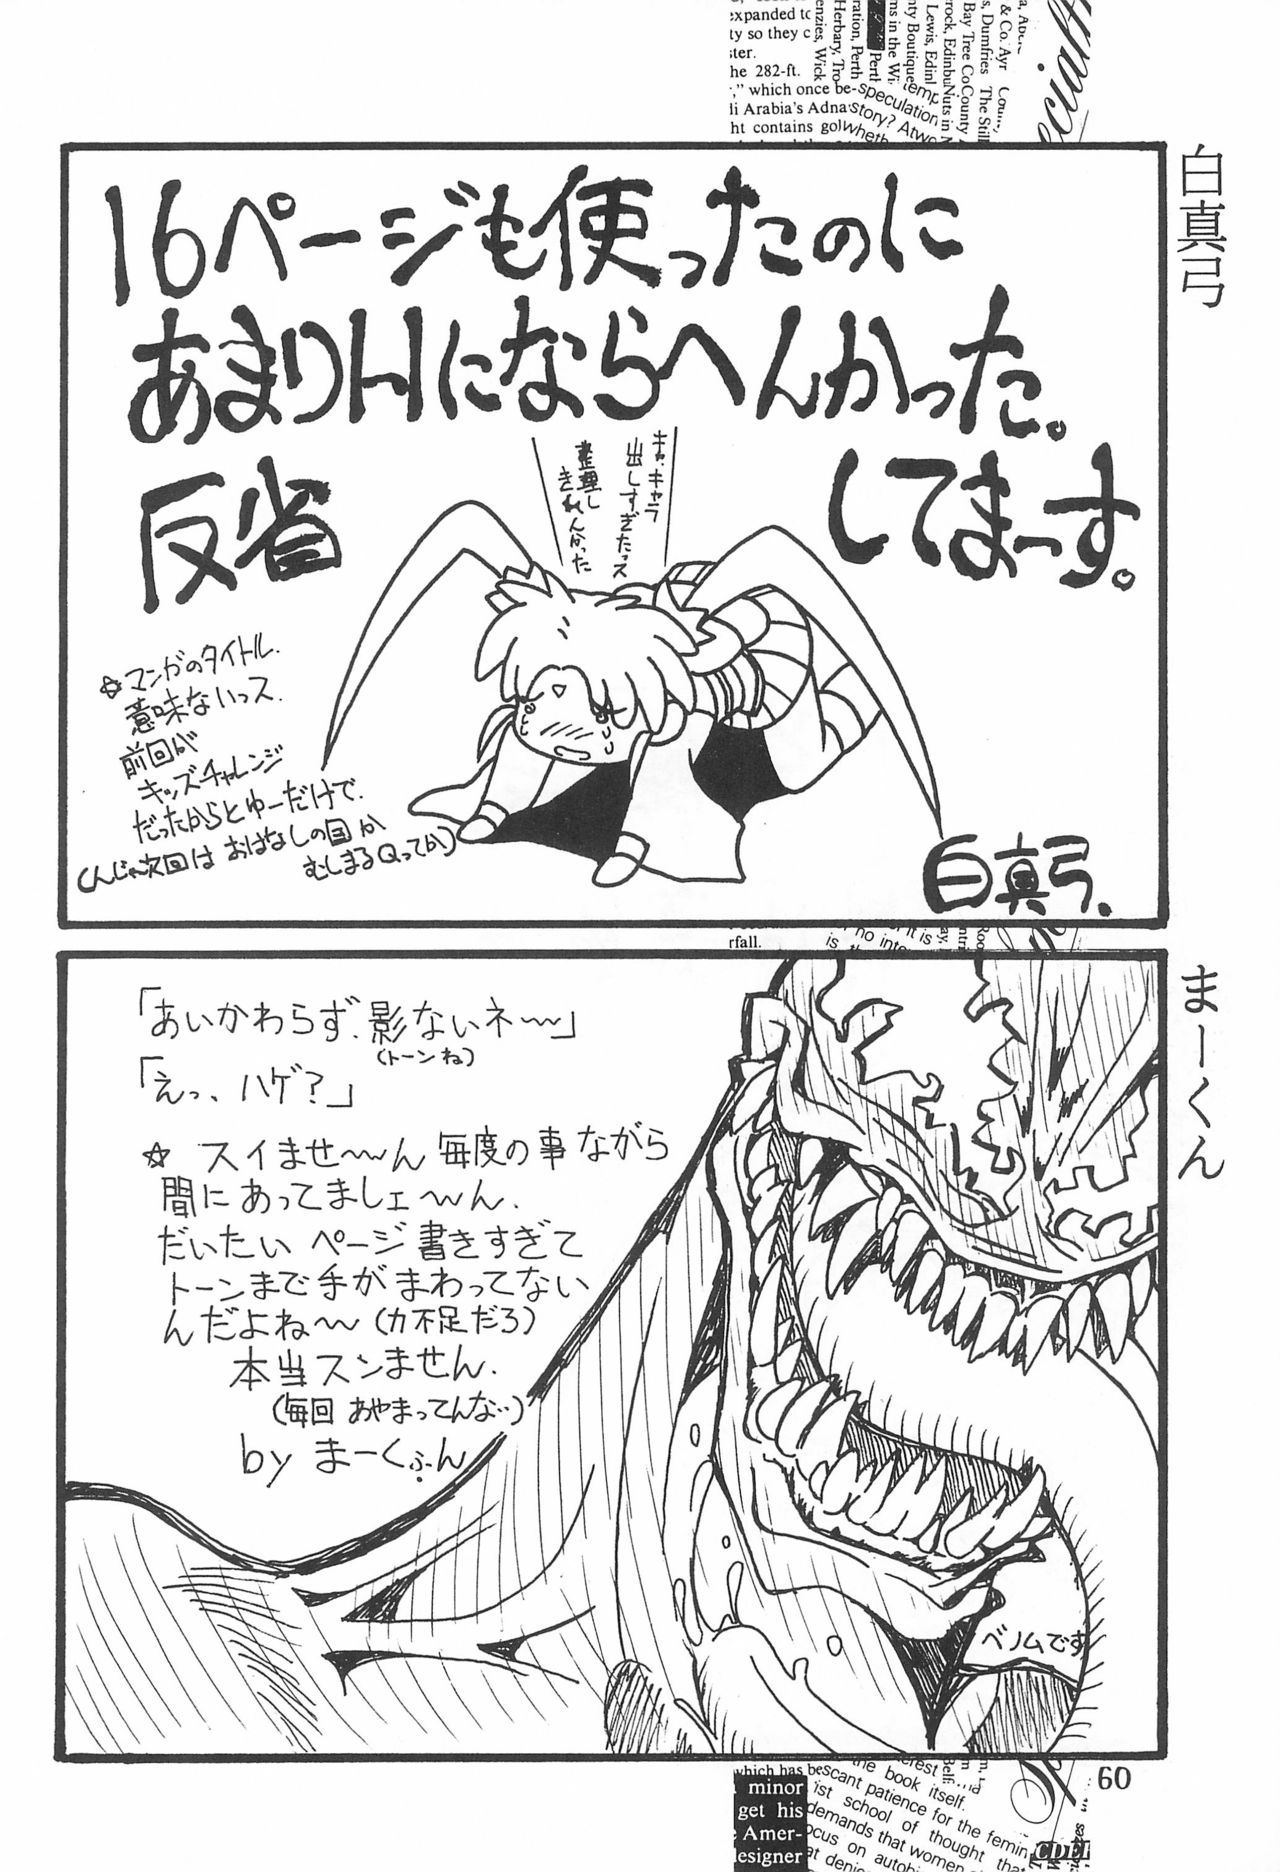 expanded to
ty so they c
ster.
he 282-ft.
," which once be-
li Arabia's Adna
ht contains gol
speculation
story? Atwo
wheth
白真弓
16ページも使ったのに
あまりHにならへんかった。
反省
してまーす。
キャ、キャラ
出しすぎたっス
整理し
きれんかった
☆マンガのタイトル、
意味ないっス、
前回が
キッズチャレンジ
だったからとゆーだけで、
(んじゃ次回は おはなしの国か
むしまるQってか)
白真弓、
rfall.
まーくん
「あいかわらず、影ないネ〜」
(トーンね)
「えっ、ハゲ?」
☆ スイませ〜ん 毎度の事ながら
間にあってましェ〜ん、
だいたい ページ書きすぎて
トーンまで手がまわってない
んだよね〜(力不足だろ)
本当スンません、
(毎回 あやまってんな‥)
by まーくふん
ベノムです
60
which has be
minor
get his
Amer-
designer
scant patience for the femin
ist school of thought tha
demands that women
ocus on autobi
the book itself.